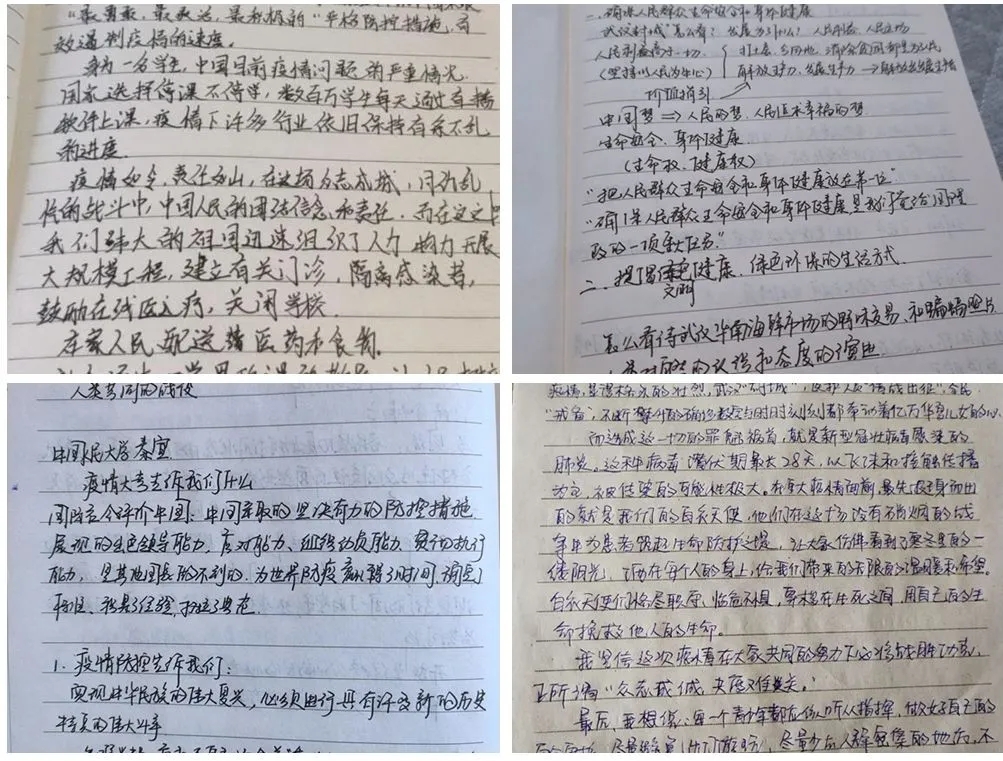 "最勇敢、最灵活、最积极的"严格防控措施,有
效遏制疫情的速度。
身为一名学生,中国目前疫情问题的严重情况
国家选择停课不停学,数百万学生每天通过直播
软件上课,疫情下许多行业依旧保持有条不乱
的进度.
疫情如令,责任如山,在这场众志成城,同
的战斗中,中国人民的团结信念和责任.而在这之中
我们强大的祖国迅速组织了人力物力开展
大规模工程,建立有关门诊,隔离感染者,
鼓励在线医疗,关闭学校.
在家人民配送着医药和食物.
一.确保人民群众生命安全和身体健康
武汉封城"怎么看? 发展为了什么? 人民利益、人民立场
人民利益高于一切.
(坚持以人民为中心) 解放生产力、发展生产力
价值指引
中国梦 => 人民的梦、人民追求幸福的梦
生命安全、身体健康
(生命权、健康权)
"把人民群众生命安全和身体健康放在第一位"
"确保人民群众生命安全和身体健康,是我们党治国理
政的一项重大任务"
二、提倡健康、绿色环保的生活方式
文明
怎么看待武汉华南海鲜市场的野味交易、和蝙蝠照片
人类对自然的认识和态度的演进
人类共同的战役
中国人民大学秦宣
疫情大考告诉我们什么
国际社会评价中国:中国采取的坚决有力的防控措施
展现的出色领导能力、应对能力、组织动员能力、贯彻执行
能力,是其他国家做不到的.为世界防疫赢得了时间,
积累了经验,树立了典范.
1.疫情防控告诉我们:
实现中华民族的伟大复兴,必须进行具有许多新的历史
特点的伟大斗争
疫情,武汉"封城",
"戒备",不断攀升的确诊数字时时刻刻都牵动着亿万华夏儿女的心
而造成这一切的罪魁祸首,就是新型冠状病毒感染的
肺炎。这种病毒潜伏期最大28天,以飞沫和接触传播
为主,被传染的可能性极大。在重大疫情面前,最先挺身而出
的就是我们的白衣天使,他们在这场没有硝烟的战
争中为患者筑起生命防护之堤,让大家仿佛看到了寒冬里的一
缕阳光,洒在每个人的身上,给我们带来的无限的温暖和希望。
白衣天使们恪尽职守、临危不惧,穿梭在生死之间,用自己的生
命挽救他人的生命。
我坚信这次疫情在大家共同的努力下必将战胜
正所谓"众志成城,共度难关。"
最后,我想说,每一个青少年都应做听从指挥,做好自己的
尽量少去人群密集的地方,不